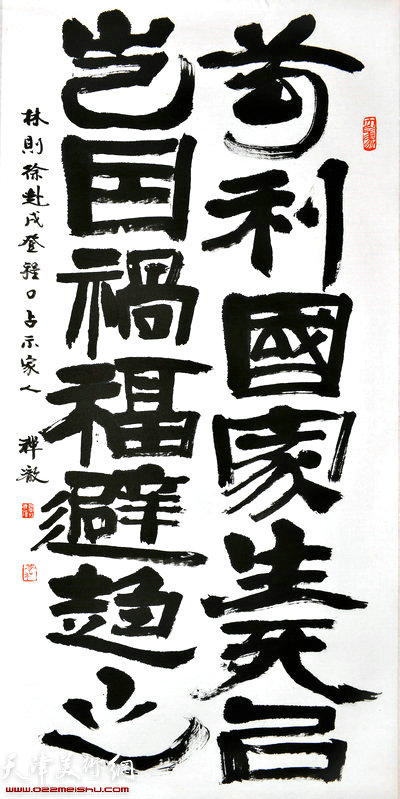 苟利國家生死㠯
豈因禍福避趨之
林則徐赴戍登程口占示家人
禪澈
天津美术网
www.022meishu.com